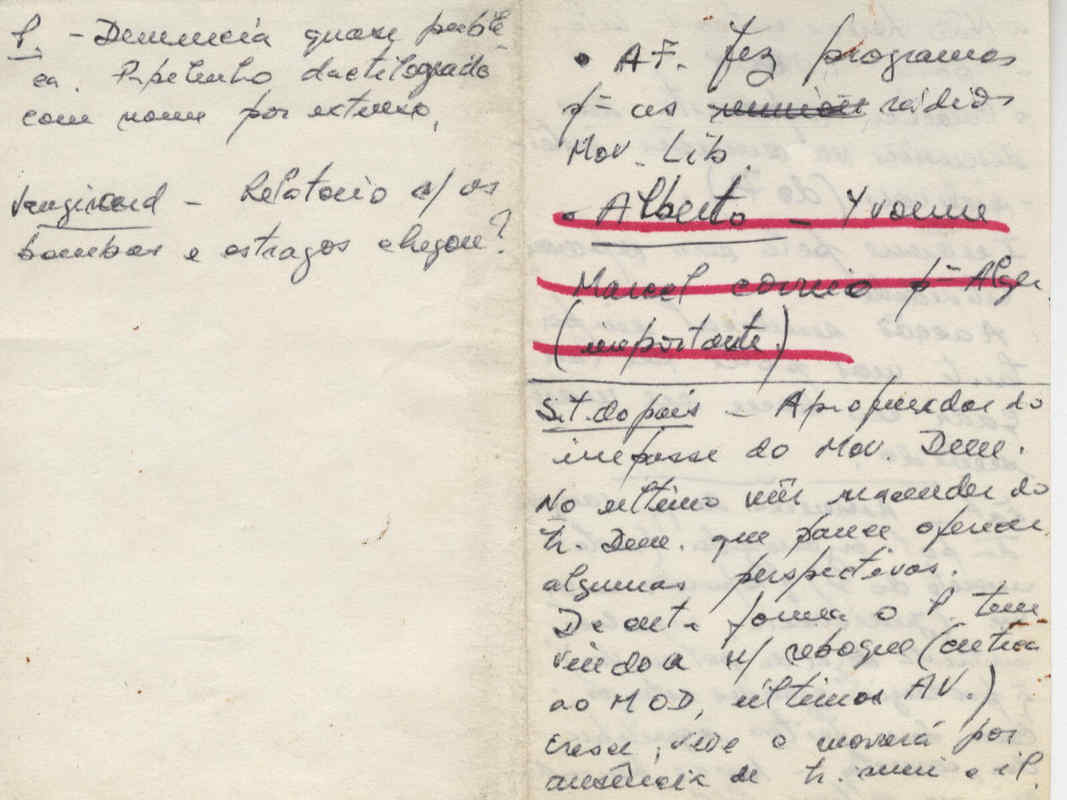 P. - Denuncia quase públi-
ca. Papelinho dactilografado
com nome por extenso,
Vaugirard - Relatorio s/ as
bombas e estragos chegou?
• A.F. fez programas
p= as reunion rádios
Mov. Lib.
• Alberto - Yvonne
Marcel correio p= Alger
(importante.)
Sit. do país - Aprofundar do
impasse do Mov. Dem.
No último mês reacender do
tr. Dem. que parece oferecer
algumas perspectivas.
De certa forma o P. tem
vindo a s/ reboque (critica
ao MOD, últimos AV.)
Cresce, vive e moverá por
ausência de tr. uni e il.